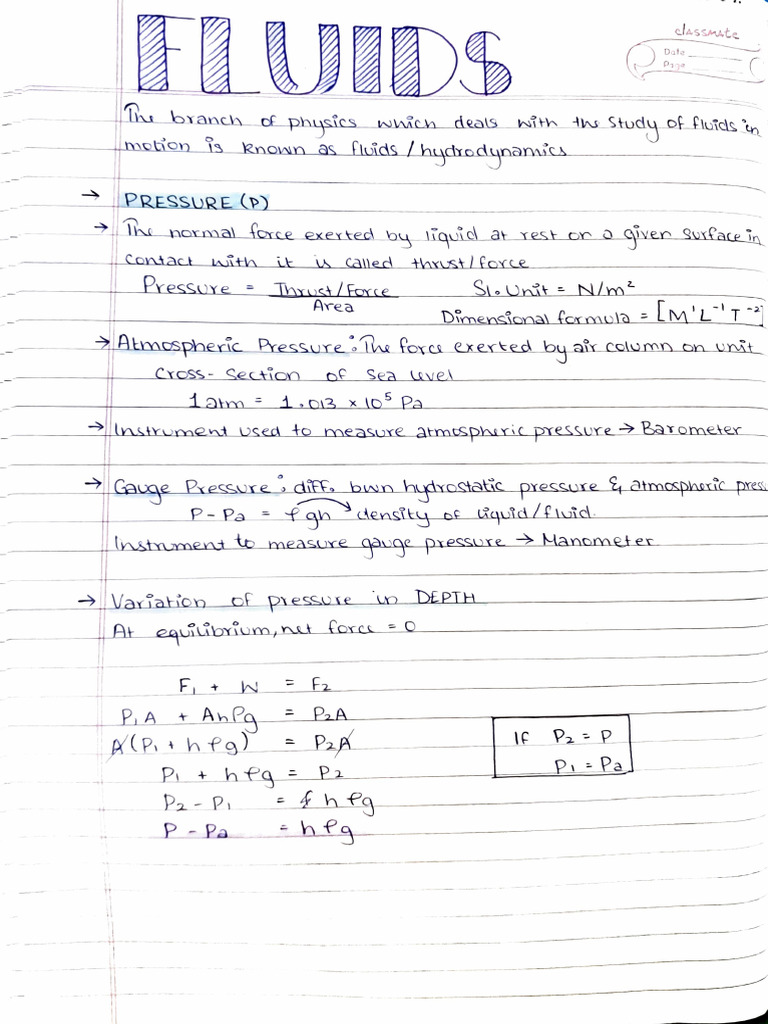 FLUIDS
classmate
Date
Page
The branch of physics which deals with the study of fluids in
motion is known as fluids / hydrodynamics
→ PRESSURE (P)
→ The normal force exerted by liquid at rest on a given surface in
contact with it is called thrust/force
Pressure = Thrust/Force / Area SI. Unit = N/m²
Dimensional formula = [M¹L⁻¹T⁻²]
→ Atmospheric Pressure : The force exerted by air column on unit
cross-section of sea level
1 atm = 1.013 × 10⁵ Pa
→ Instrument used to measure atmospheric pressure → Barometer
→ Gauge Pressure : diff. bwn hydrostatic pressure & atmospheric pres
P - Pa = ρgh density of liquid/fluid.
Instrument to measure gauge pressure → Manometer
→ Variation of pressure in DEPTH
At equilibrium, net force = 0
F₁ + W = F₂
P₁A + Ahρg = P₂A
A(P₁ + hρg) = P₂A
P₁ + hρg = P₂
P₂ - P₁ = hρg
P - Pa = hρg
If P₂ = P
P₁ = Pa